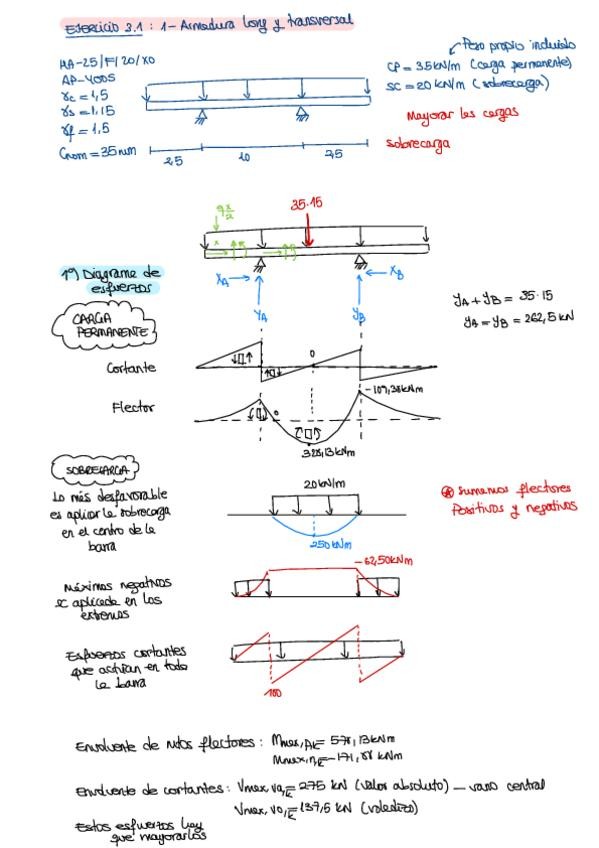 EJERCICIO 3.1 : 1- Armadura long y transversal
HA-25/F/20/X0
AP-400S
γc = 1,5
γs = 1,15
γf = 1,5
Cnom = 35mm
Peso propio incluido
CP = 35kN/m (carga permanente)
SC = 20kN/m (sobrecarga)
Mayorar las cargas
sobrecarga
2,5
10
2,5
35·15
q x/2
x
1º) Diagrama de esfuerzos
XA
XB
YA
YB
YA + YB = 35·15
YA = YB = 262,5 kN
CARGA
PERMANENTE
Cortante
0
Flector
0
-109,38kNm
328,13kNm
SOBRECARGA
Lo más desfavorable
es aplicar la sobrecarga
en el centro de la
barra
20kN/m
250kNm
* Sumamos flectores
Positivos y negativos
Máximos negativos
sc aplicada en los
extremos
-62,50kNm
Esfuerzos cortantes
que actúan en toda
la barra
100
Envolvente de mtos flectores : Mmax,pk = 578,13kNm
Mmax,nk = -171,88 kNm
Envolvente de cortantes : Vmax,va,k = 275 kN (valor absoluto) – vano central
Vmax,vo,k = 137,5 kN (voladizo)
Estos esfuerzos hay
que mayorarlos